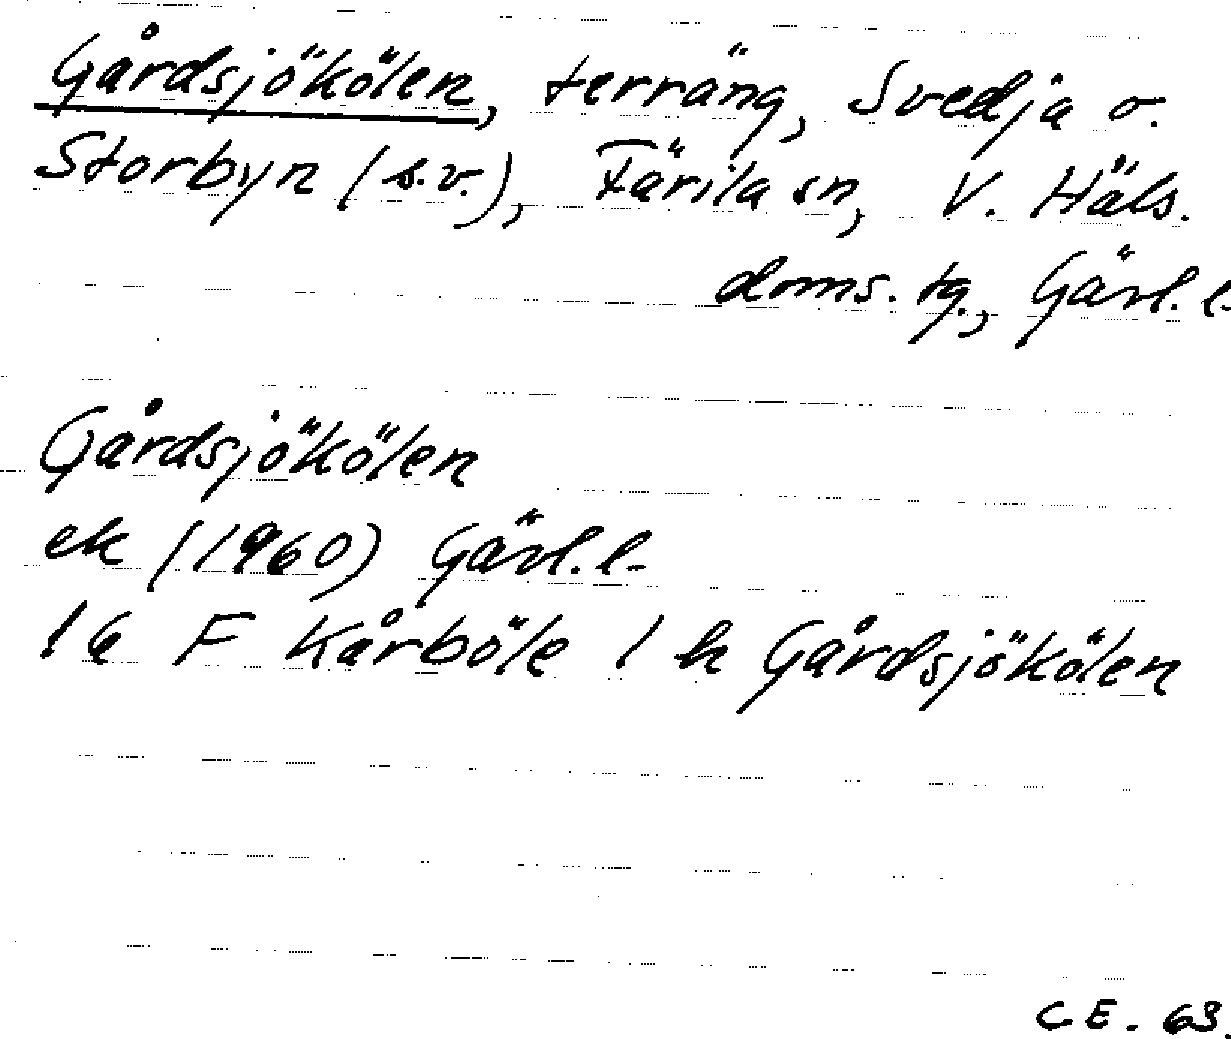 Gårdsjökölen, terräng, Svedja o.
Storbyn (s.v.), Färila sn, V. Häls.
doms. tg., Gävl. l.
Gårdsjökölen
ek (1960) Gävl. l.
16 F Kårböle 1 h Gårdsjökölen
CE. 63.